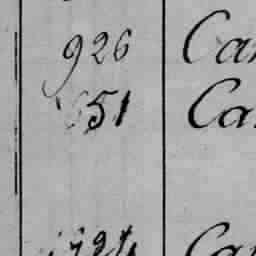 926 Ca
651 Ca
Ca